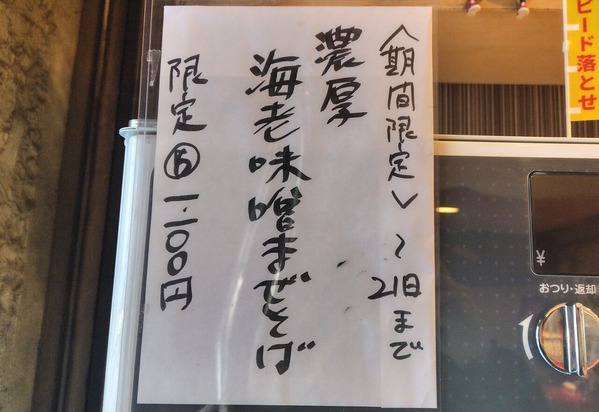 〈期間限定〉 〜21日まで
濃厚
海老味噌まぜそば
限定 1,100円
ピード落とせ
¥
おつり・返却